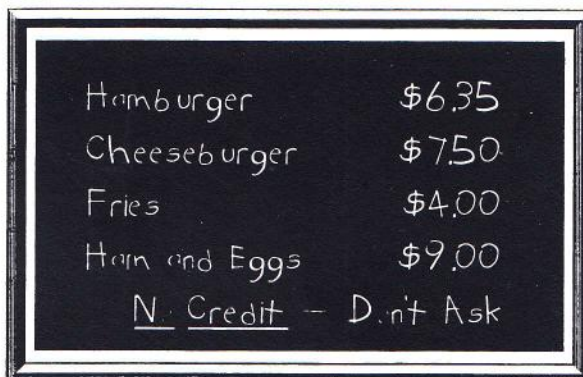 Hamburger $6.35
Cheeseburger $7.50
Fries $4.00
Ham and Eggs $9.00
No Credit – Don't Ask